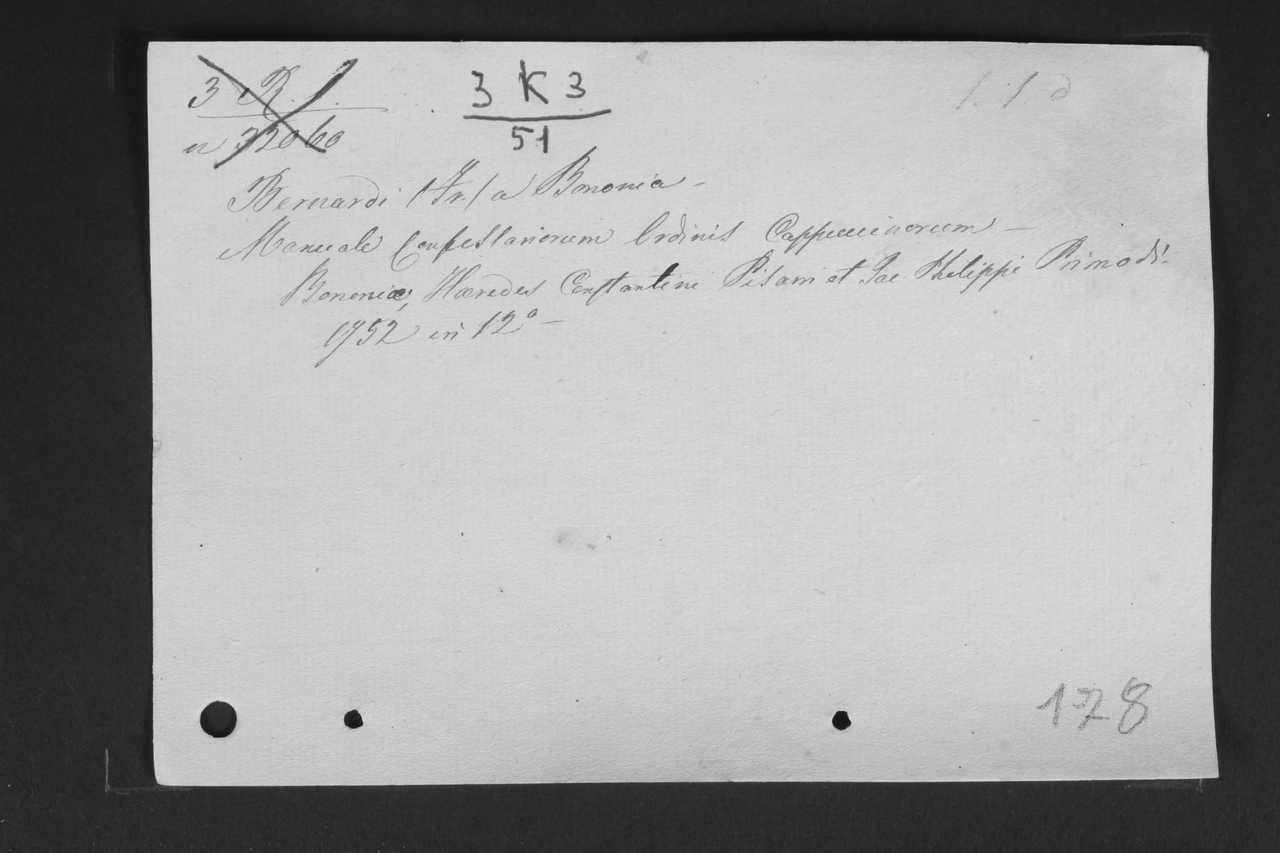 3 R. 1
n 32060
3 K 3
51
Bernardi (Fr.) a Bononia –
Manuale Confessariorum Ordinis Cappuccinorum –
Bononiæ, Hæredes Constantini Pisarri et Jac Philippi Primodi.
1752 in 12° –
178